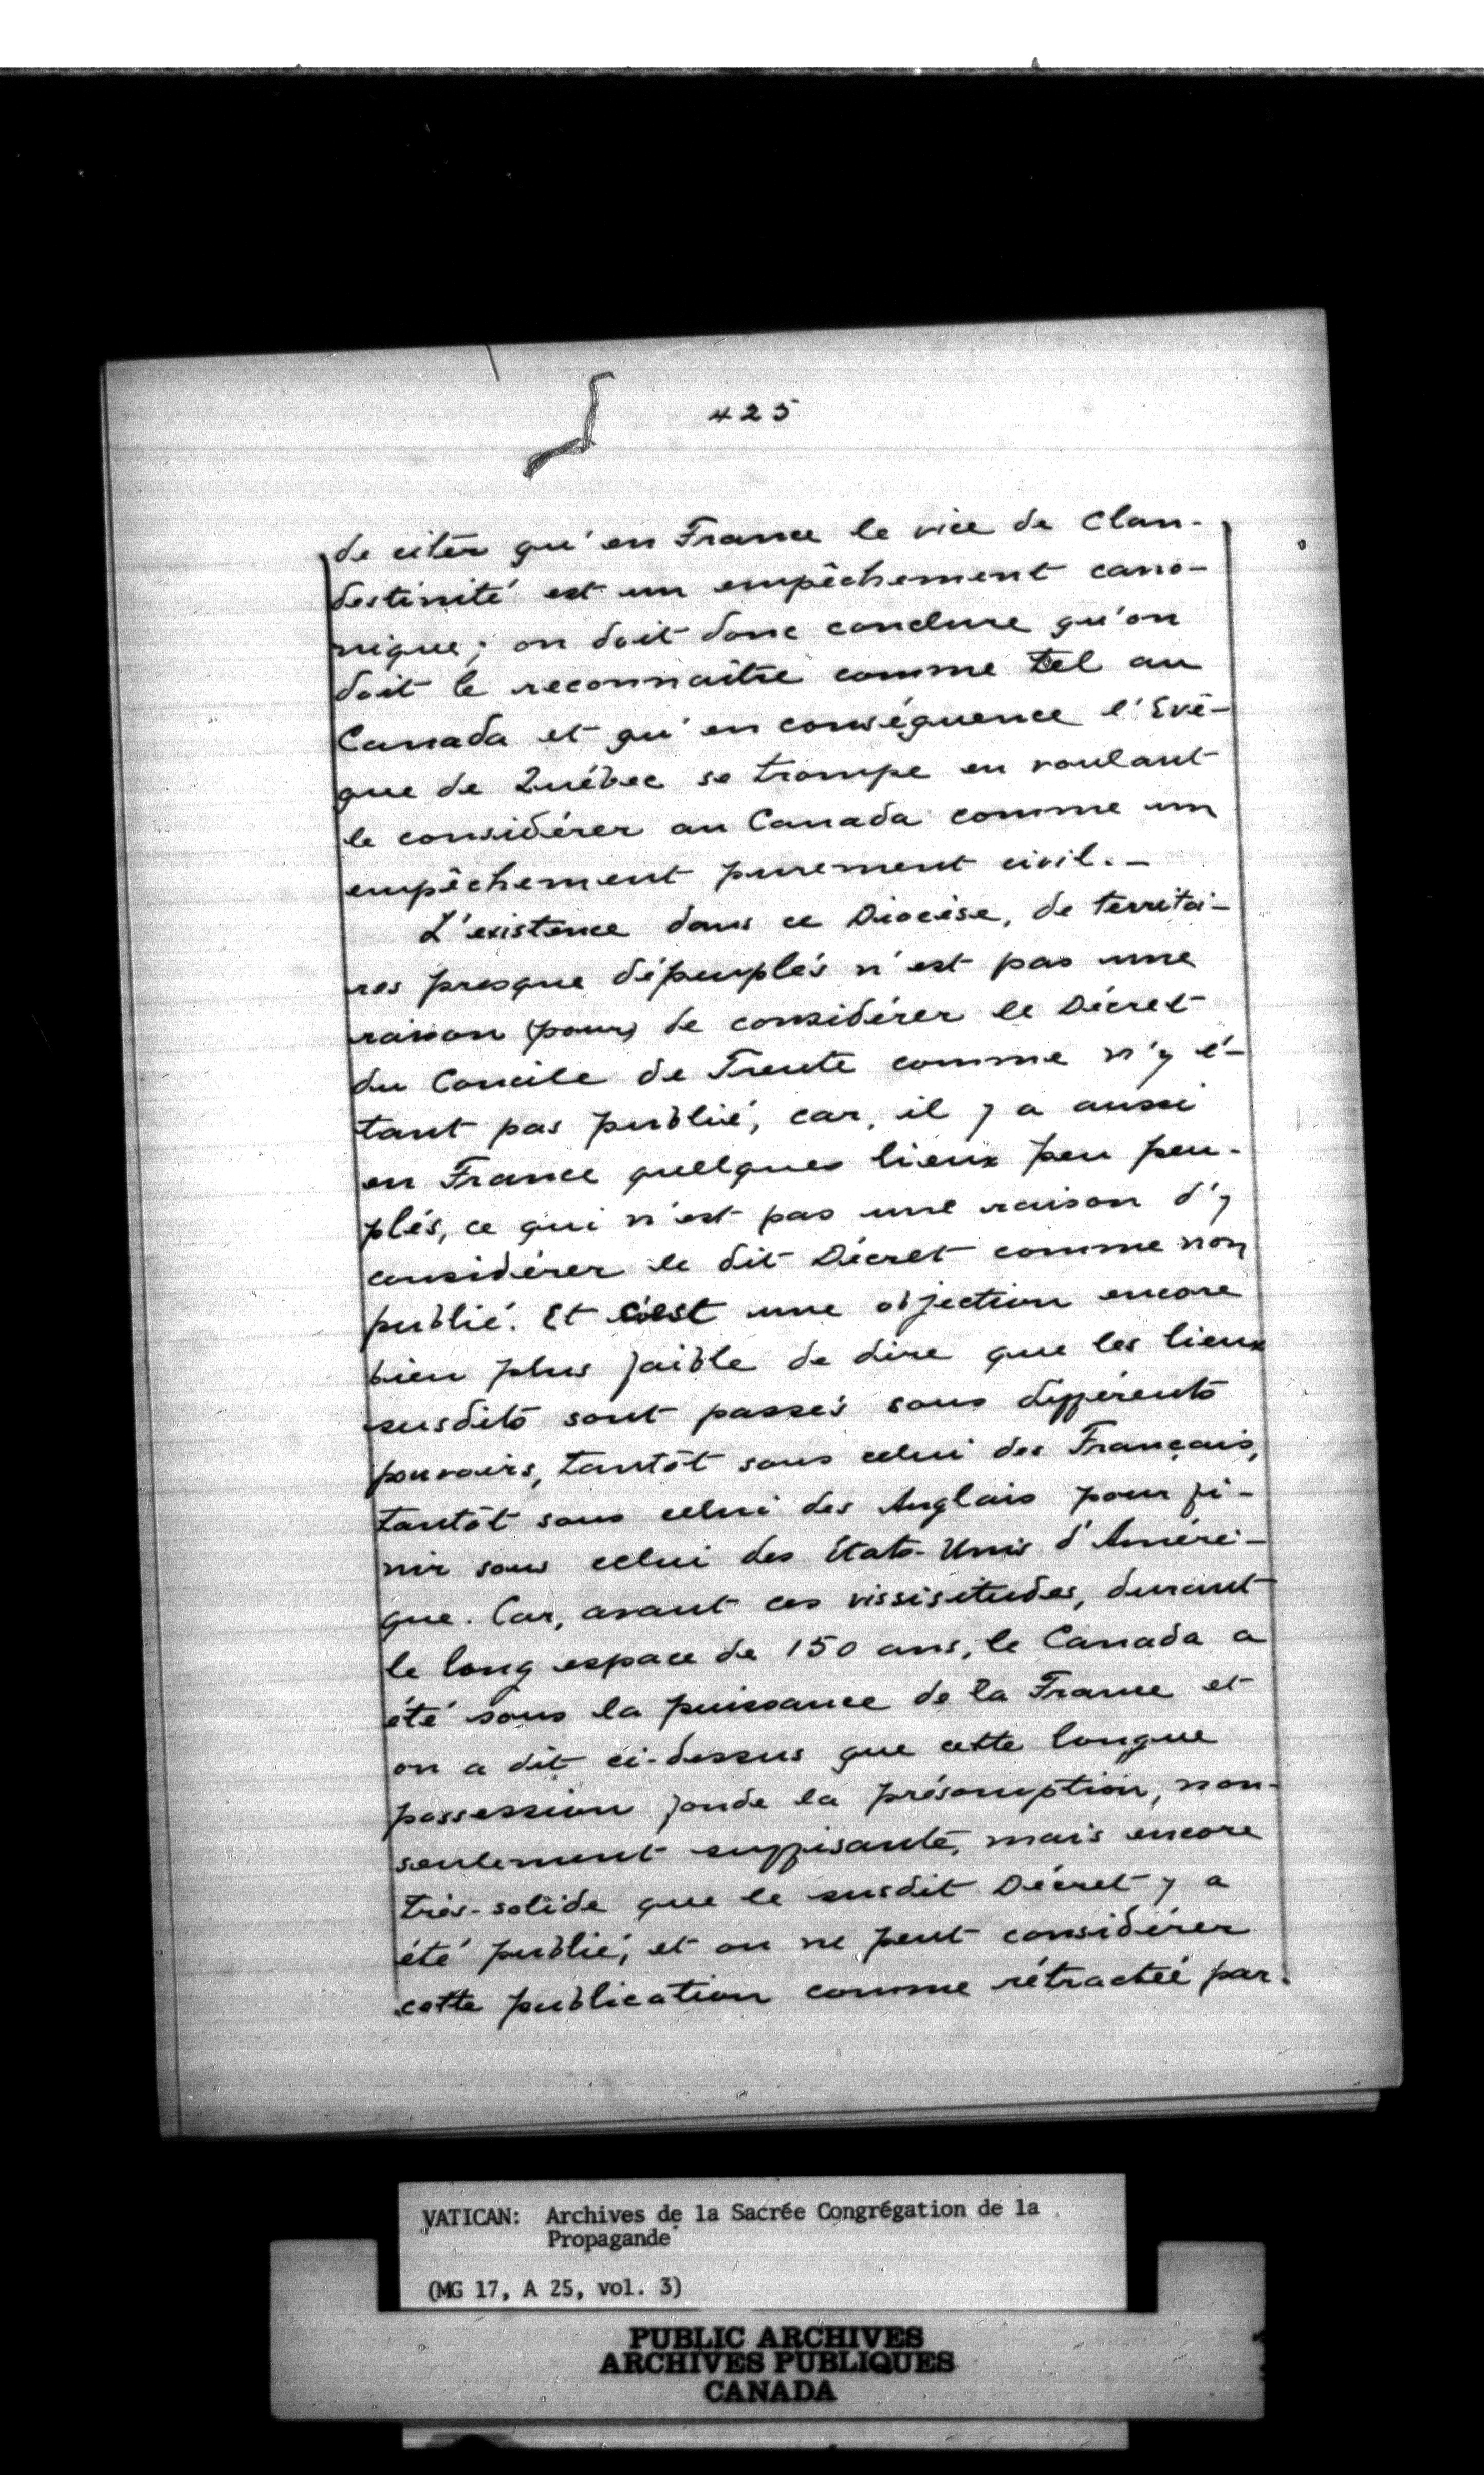 425
de citer qu'en France le vice de Clan-
destinité est un empêchement cano-
nique; on doit donc conclure qu'on
doit le reconnaître comme tel au
Canada et qu'en conséquence l'Evê-
que de Québec se trompe en voulant
le considérer au Canada comme un
empêchement purement civil. -
L'existence dans ce Diocèse, de territoi-
res presque dépeuplés n'est pas une
raison (pour) de considérer le Décret
du Concile de Trente comme n'y é-
tant pas publié, car, il y a aussi
en France quelques lieux peu peu-
plés, ce qui n'est pas une raison d'y
considérer le dit Décret comme non
publié. Et c'est une objection encore
bien plus faible de dire que les lieux
susdits sont passés sous différents
pouvoirs, tantôt sous celui des Français,
tantôt sous celui des Anglais pour fi-
nir sous celui des Etats-Unis d'Améri-
que. Car, avant ces vissisitudes, durant
le long espace de 150 ans, le Canada a
été sous la puissance de la France et
on a dit ci-dessus que cette longue
possession fonde la présomption, non-
seulement suffisante, mais encore
très-solide que le susdit Décret y a
été publié, et on ne peut considérer
cette publication comme rétractée par.
VATICAN: Archives de la Sacrée Congrégation de la
Propagande
(MG 17, A 25, vol. 3)
PUBLIC ARCHIVES
ARCHIVES PUBLIQUES
CANADA